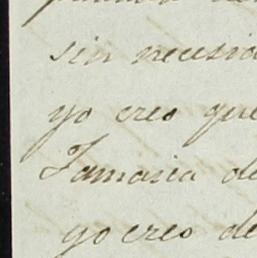 sin necesid
yo creo que
Tamaria de
yo creo de